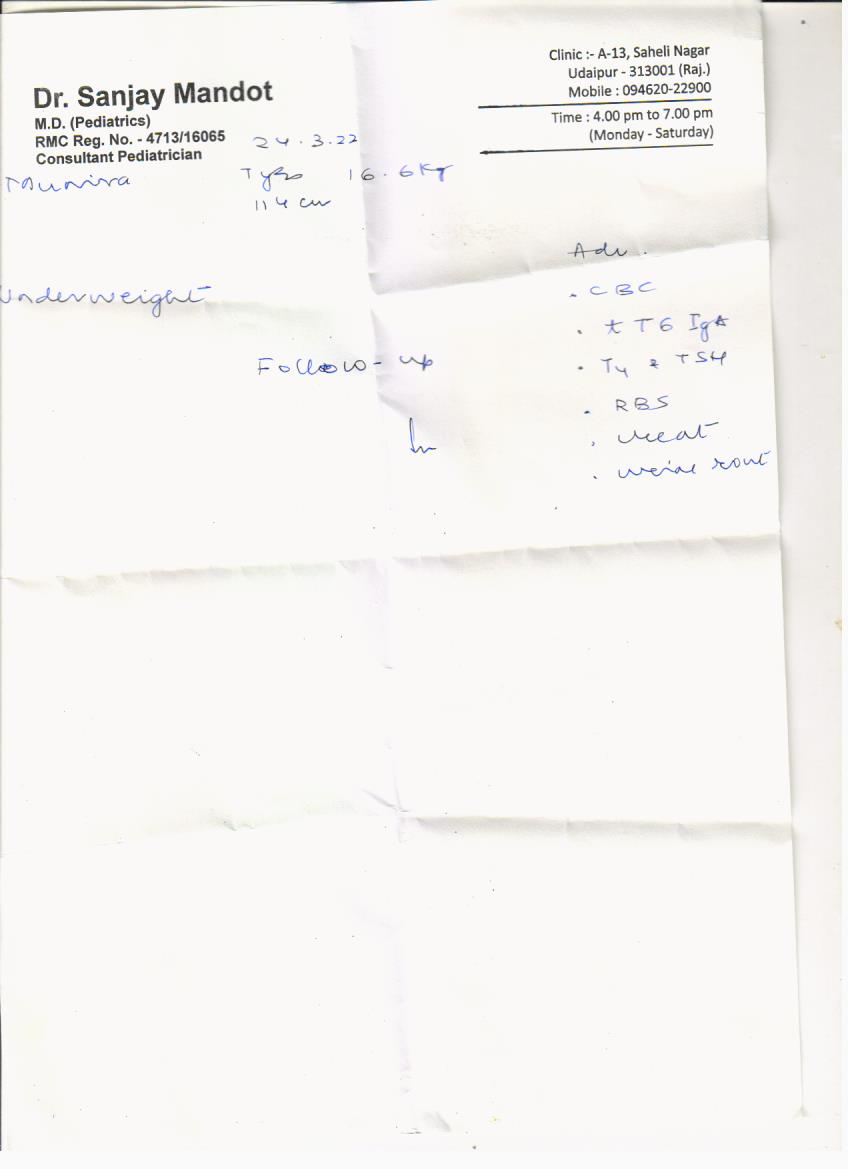 Dr. Sanjay Mandot
M.D. (Pediatrics)
RMC Reg. No. - 4713/16065
Consultant Pediatrician
Clinic :- A-13, Saheli Nagar
Udaipur - 313001 (Raj.)
Mobile : 094620-22900
Time : 4.00 pm to 7.00 pm
(Monday - Saturday)
24.3.22
16.6Kg
114 cm
Underweight
Follow-up
Adv.
. CBC
. tTG IgA
. T4 & TSH
. RBS
. creat
. urine rout